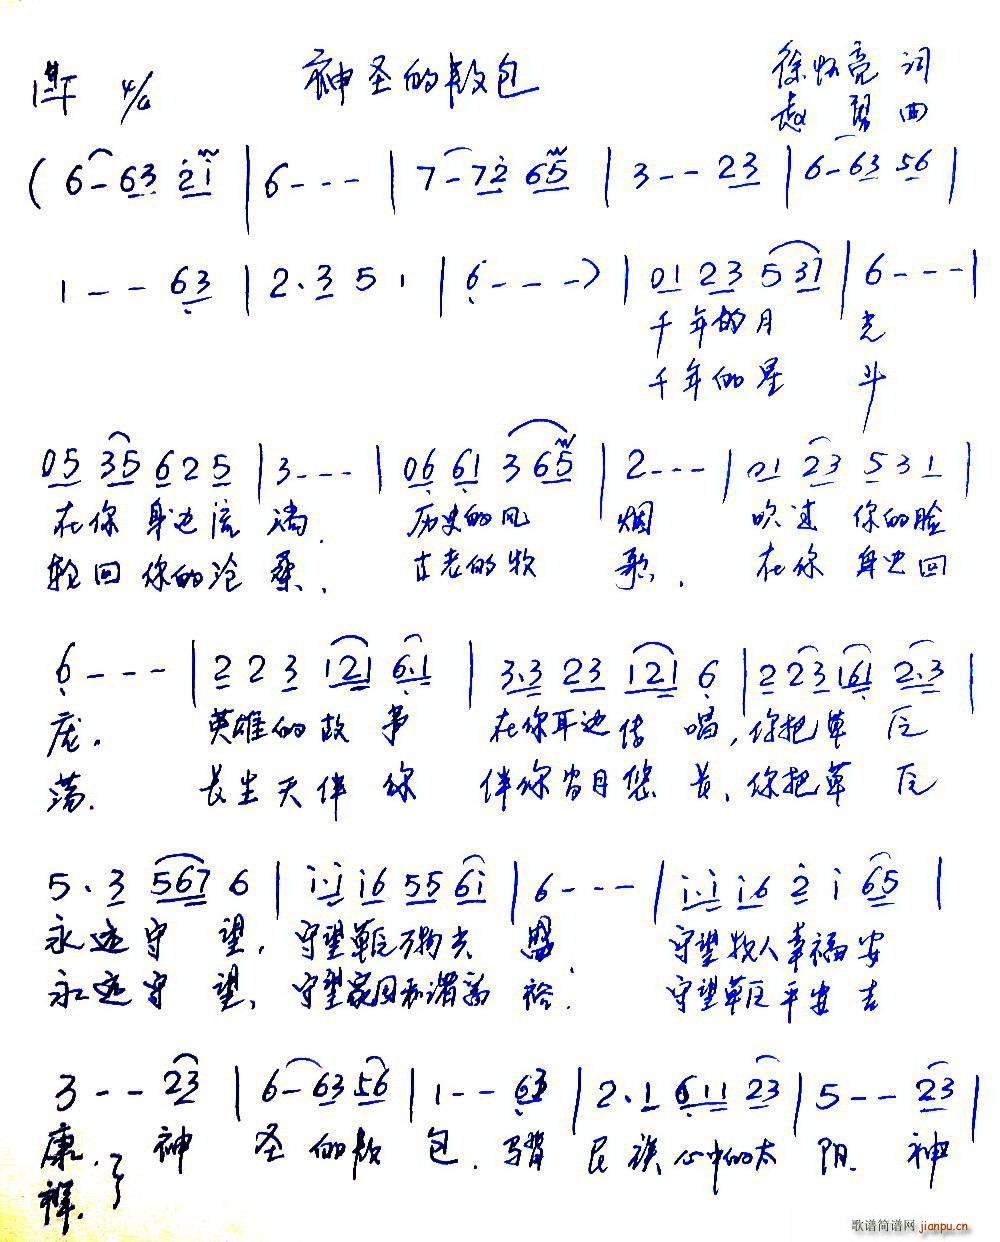 1=F 4/4 神圣的敖包 徐怀亮 词
志 曲
( 6 - 6 3 2 1 | 6 - - - | 7 - 7 2 6 5 | 3 - - 2 3 | 6 - 6 3 5 6 |
1 - - 6 3 | 2 · 3 5 1 | 6 - - - ) | 0 1 2 3 5 3 7 | 6 - - - |
千年的月 光
千年的星 斗
0 5 3 5 6 2 5 | 3 - - - | 0 6 6 1 3 6 5 | 2 - - - | 0 1 2 3 5 3 1 |
在你 身边流 淌. 历史的风 烟 吹过 你的脸
轮回 你的沧 桑. 古老的牧 歌. 在你 身边回
6 - - - | 2 2 3 1 2 1 6 · 1 | 3 · 3 2 3 1 2 1 6 | 2 2 3 1 6 1 2 · 3 |
庞. 英雄的故 事 在你耳边传 唱,你把草原
荡. 长生天伴 你 伴你岁月悠 长,你把草原
5 · 3 5 6 7 6 | i · i i 6 5 5 6 i | 6 - - - | i · i i 6 2 i 6 5 |
永远守 望, 守望草原万物共 盟. 守望牧人幸福安
永远守 望, 守望家园和谐富 裕. 守望草原平安吉
3 - - 2 3 | 6 - 6 3 5 6 | 1 - - 6 3 | 2 · 1 6 1 1 2 3 | 5 - - 2 3 |
康. 神 圣 的敖 包. 马背 民族心中的太 阳. 神
祥.
歌谱简谱网 jianpu.cn